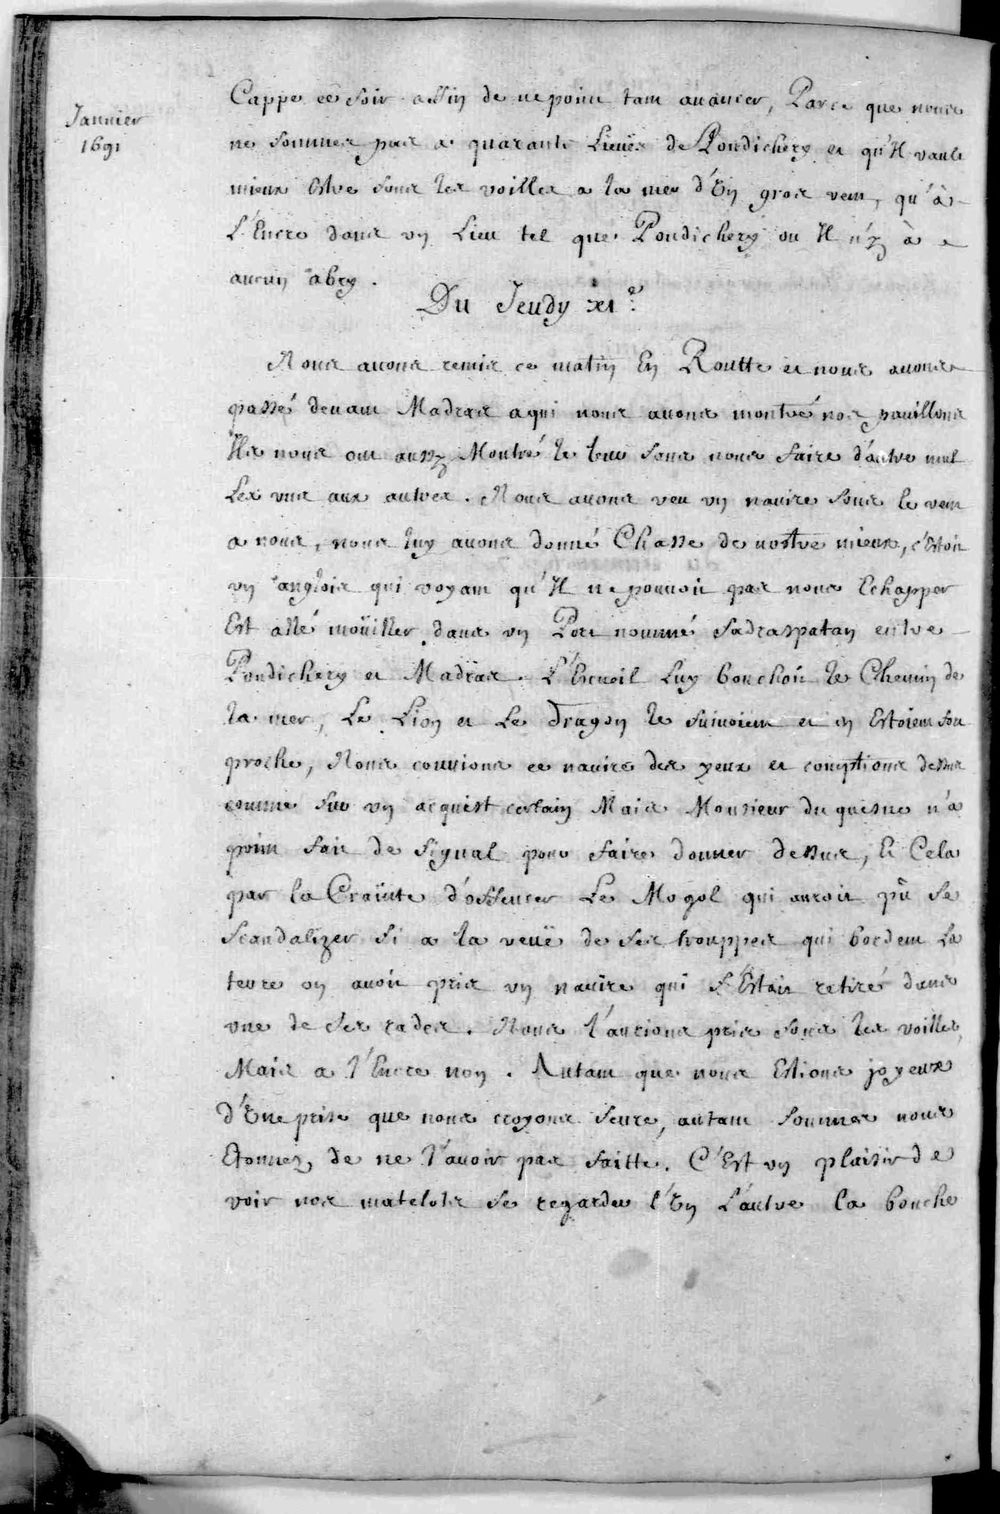 Janvier
1691
Cappe ce soir affin de ne point tant auancer, Parce que nous
ne sommes pas a quarante Lieües de Pondichery et qu'Il vault
mieux Estre sous les voilles a la mer d'Un gros vent, qu'à
L'Encre dans vn Lieu tel que Pondichery ou Il n'y à
aucun abry.
Du Jeudy xi.e
Nous auons remis ce matin En Routte et nous auons
passé deuant Madras a qui nous auons montré nos pauillons
Ils nous ont aussy Montré le leur sans nous faire d'autre mal
Les vns aux autres. Nous auons veu vn nauire sous le vent
a nous, nous luy auons donné Chasse de nostre mieux, c'Estoit
vn anglois qui voyant qu'Il ne pouuoit pas nous Echapper
Est allé moüiller dans vn Port nommé Sadraspatan entre
Pondichery et Madras. L'Escueil Luy bouchoit le Chemin de
la mer, Le Lion et Le Dragon le suiuoient et en Estoient fort
proche, Nous couuions ce nauire des yeux et comptions dessus
comme sur vn acquest certain Mais Monsieur du quesne n'a
point fait de signal pour faire donner dessus, Et Cela
par la Crainte d'offencer Le Mogol qui auroit pû se
scandalizer si a la veuë de ses trouppes qui bordent La
terre on auoit pris vn nauire qui s'Estoit retiré dans
vne de ses rades. Nous l'aurions pris sous les voilles,
Mais a l'Encre non. Autant que nous Estions joyeux
d'Une prise que nous croyons seure, autant sommes nous
Etonnez de ne l'auoir pas faitte. C'Est vn plaisir de
voir nos matelots se regarder l'Un L'autre la bouche